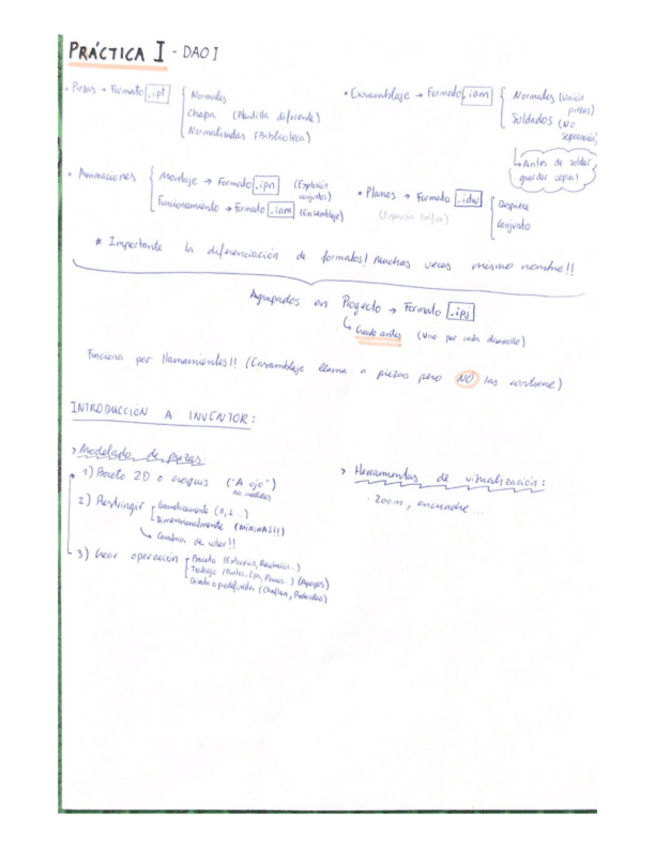 PRÁCTICA I - DAO I
• Piezas → Formato .ipt { Normales
Chapa (Plantilla diferente)
Normalizadas (Biblioteca)
• Ensamblaje → Formato .iam { Normales (Unión piezas)
Soldados (NO separación)
↳ Antes de soldar, guardar copia!
• Animaciones { Montaje → Formato .ipn (Explosión conjuntos)
Funcionamiento → Formato .iam (Ensamblaje)
• Planos → Formato .idw { Despiece
Conjunto
* Importante la diferenciación de formatos! Muchas veces mismo nombre!!
Agrupados en Proyecto → Formato .ipj
↳ Crearlo antes (Uno por cada desarrollo)
Funciona por llamamientos!! (Ensamblaje llama a piezas pero NO las contiene)
INTRODUCCIÓN A INVENTOR:
> Modelado de piezas
1) Boceto 2D o croquis ("A ojo")
no medidas
2) Restringir
Dimensionalmente (MÍNIMAS!!)
↳ Cambia de color!!
3) Crear operación
Boceto (Extrusión, Revolución...)
Trabajo (Puntos, Ejes, Planos...) (Apoyos)
> Herramientas de visualización:
· Zoom, encuadre...